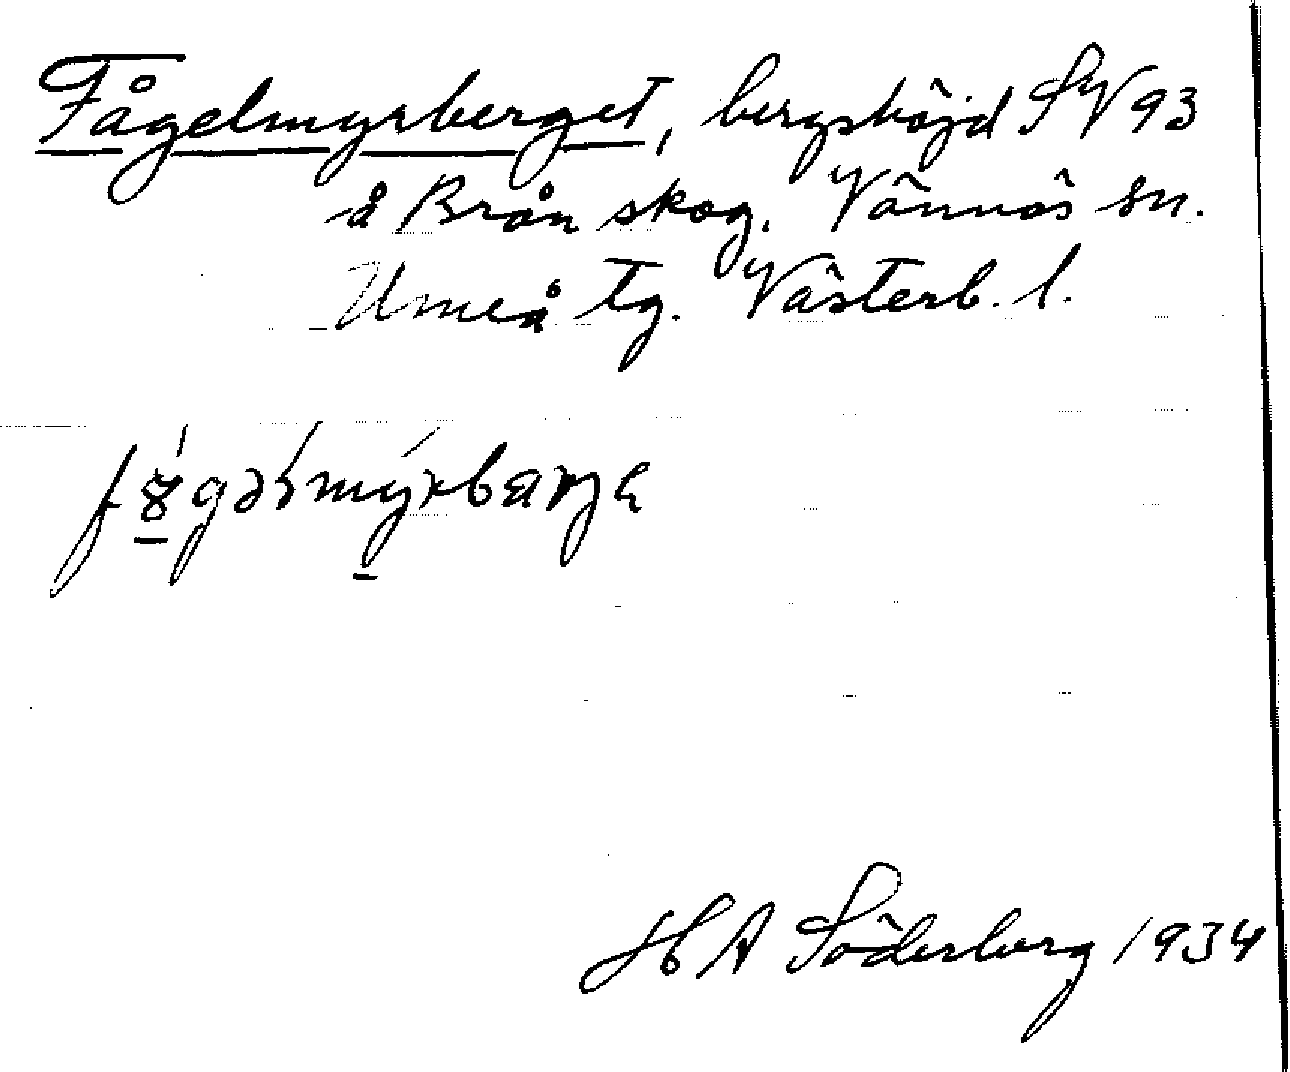 Fågelmyrberget, bergshöjd SV 93
å Brån skog. Vännäs sn.
Umeå tg. Västerb. l.
H A Söderberg 1934